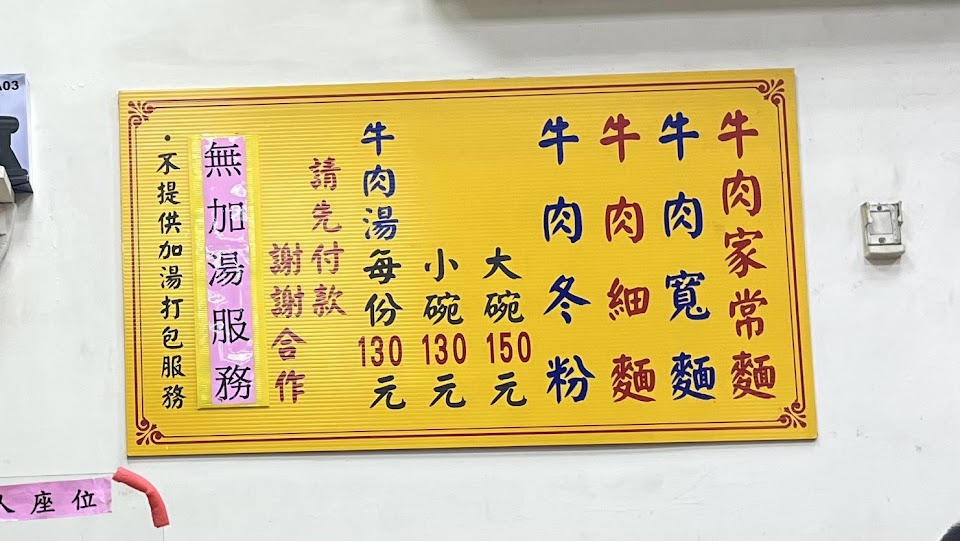 牛肉家常麵
牛肉寬麵
牛肉細麵
牛肉冬粉
大碗150元
小碗130元
牛肉湯每份130元
請先付款
謝謝合作
無加湯服務
・不提供加湯打包服務
人座位
A03